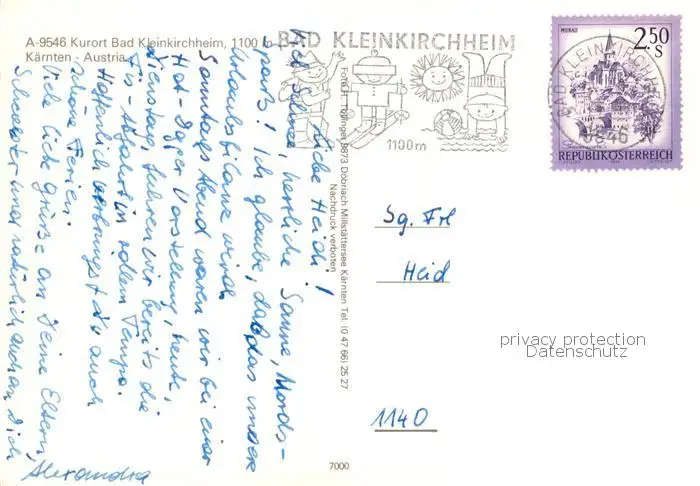 A-9546 Kurort Bad Kleinkirchheim, 1100 m
Kärnten - Austria
BAD KLEINKIRCHHEIM
1100m
BAD KLEINKIRCHHEIM
9546
MURAU
2.50
S
REPUBLIK ÖSTERREICH
Liebe Heidi!
Viel Schnee, herrliche Sonne, Mords-
spaß! Ich glaube, daß das unsere
Urlaubsbilanz wird.
Sonntags Abend waren wir bei einer
Vorstellung, heute,
Dienstag, fuhren wir bereits die
Fis-Abfahrt in vollem Tempo.
Hoffentlich verbringst du auch
schöne Ferien.
Viele liebe Grüße an Deine Eltern,
Schwester und natürlich auch an Dich
Alexandra
9873 Döbriach Millstättersee Kärnten Tel. (0 47 66) 25 27
Nachdruck verboten
Sg. Frl
Heid
1140
privacy protection
Datenschutz
7000